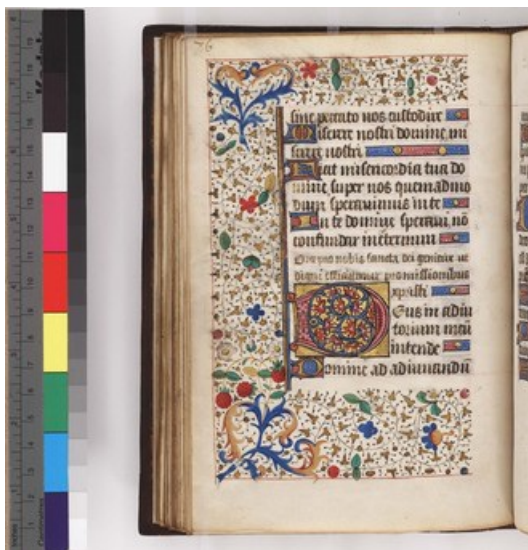 76
sine peccato nos custodire
Miserere nostri domine mi
serere nostri
Fiat misericordia tua do
mine super nos quemadmo
dum speravimus in te
In te domine speravi nõ
confundar in eternum
Ora pro nobis sancta dei genitrix ut
digni efficiamur promissionibus
xpristi
Deus in adiu
torium meũ
intende
Domine ad adiuuandũ